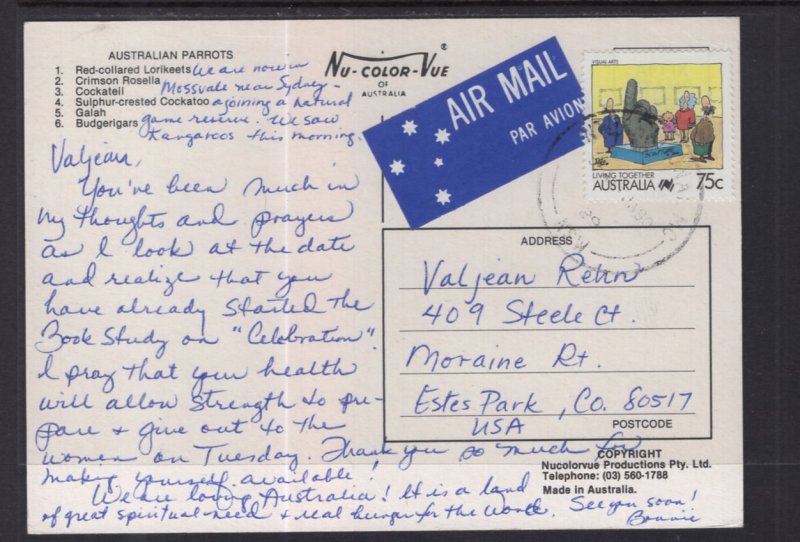 AUSTRALIAN PARROTS
1. Red-collared Lorikeets
2. Crimson Rosella
3. Cockateil
4. Sulphur-crested Cockatoo
5. Galah
6. Budgerigars
We are now in
Mossvale near Sydney -
ajoining a natural
game reserve. We saw
Kangaroos this morning.
NU-COLOR-VUE®
OF
AUSTRALIA
AIR MAIL
PAR AVION
VISUAL ARTS
LIVING TOGETHER
AUSTRALIA 75c
Valjean,
You've been much in
my thoughts and prayers
as I look at the date
and realize that you
have already started the
Book Study on "Celebration".
I pray that your health
will allow strength to pre-
pare & give out to the
women on Tuesday. Thank you so much for
making yourself available!
We are loving Australia! It is a land
of great spiritual need & real hunger for the Word. See you soon!
Bonnie
ADDRESS
Valjean Rehn
409 Steele Ct.
Moraine Rt.
Estes Park, Co. 80517
USA
POSTCODE
COPYRIGHT
Nucolorvue Productions Pty. Ltd.
Telephone: (03) 560-1788
Made in Australia.